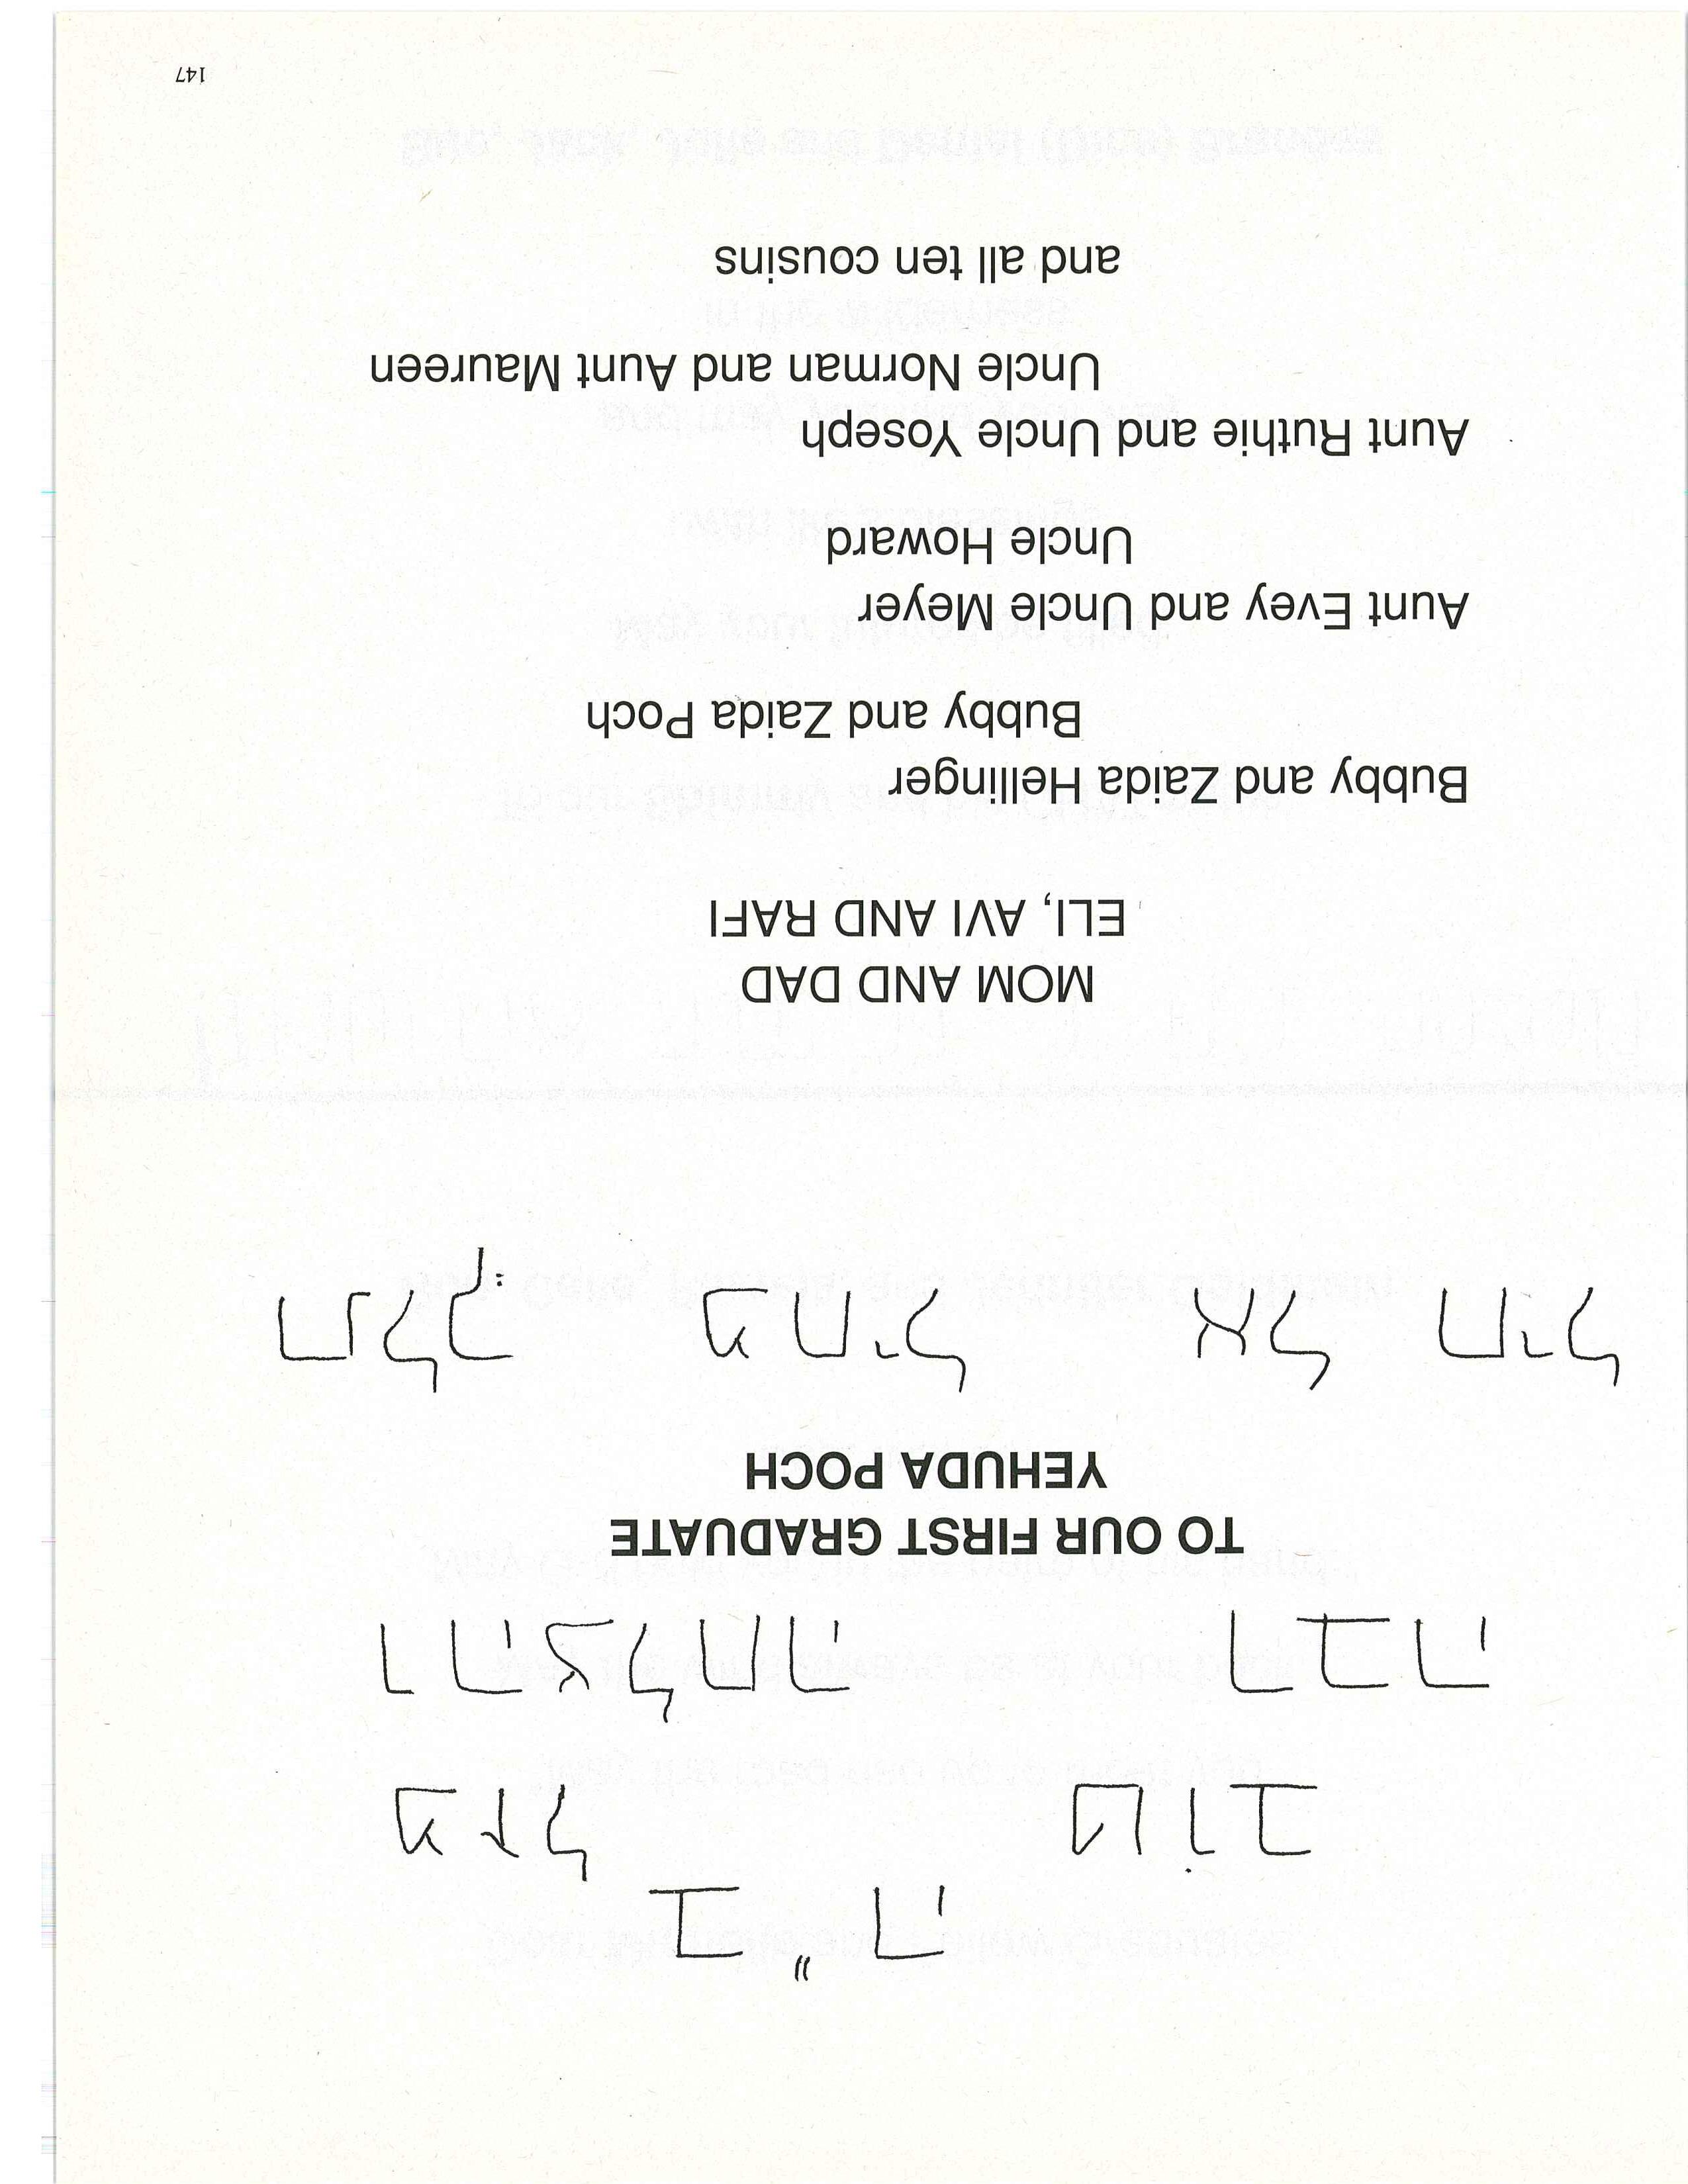 ב"ה
מזל טוב
והצלחה רבה
TO OUR FIRST GRADUATE
YEHUDA POCH
תלךְ מחיל אל חיל
MOM AND DAD
ELI, AVI AND RAFI
Bubby and Zaida Hellinger
Bubby and Zaida Poch
Aunt Evey and Uncle Meyer
Uncle Howard
Aunt Ruthie and Uncle Yoseph
Uncle Norman and Aunt Maureen
and all ten cousins
147